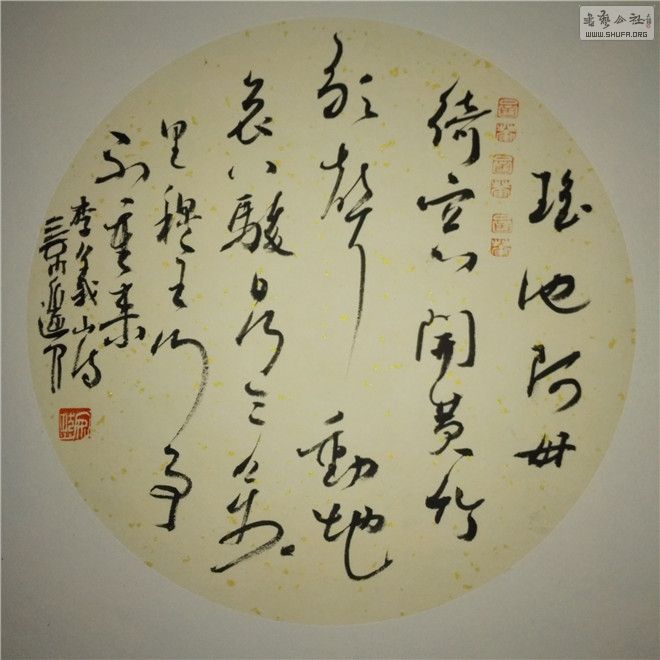 瑶池阿母
綺窗開黄竹
歌聲動地
哀八駿日行三萬
里穆王何事
不重来
李義山诗
書藝公社
WWW.SHUFA.ORG